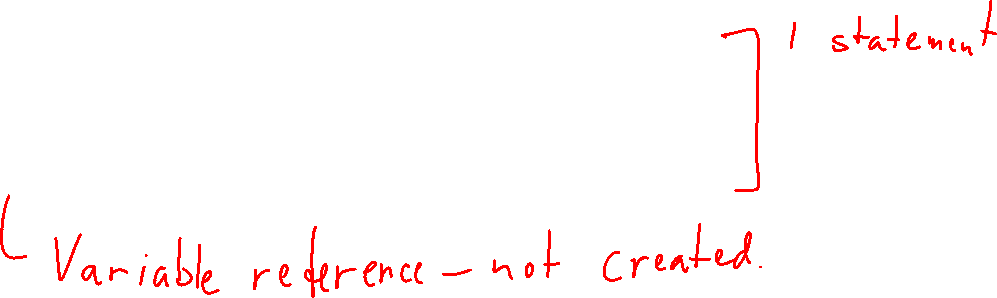 1 statement
Variable reference - not created.